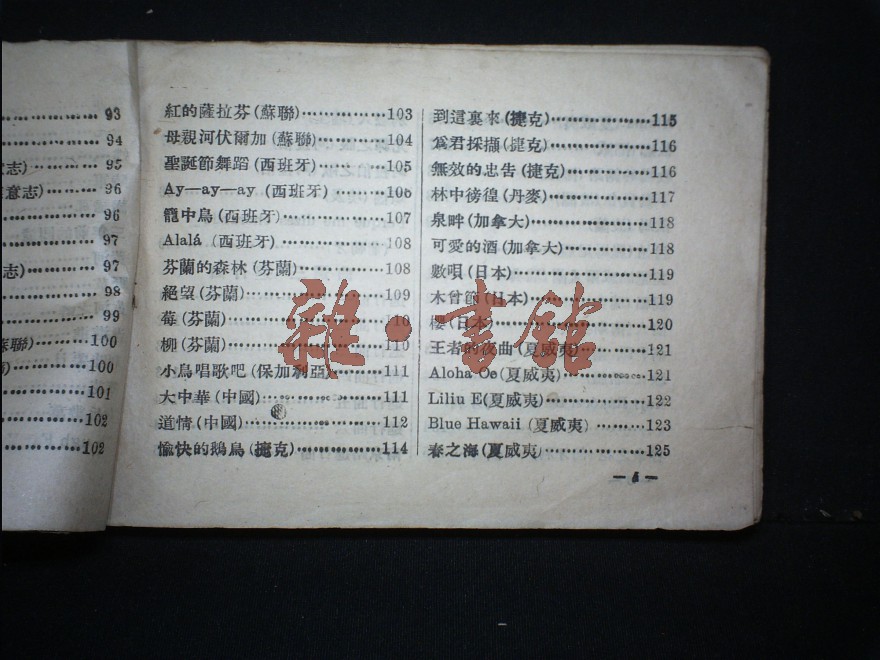 93
94
意志)95
意志)96
96
97
志)97
98
99
蘇聯)100
100
101
102
102
紅的薩拉芬(蘇聯)103
母親河伏爾加(蘇聯)104
聖誕節舞蹈(西班牙)105
Ay—ay—ay (西班牙)106
籠中鳥(西班牙)107
Alalá (西班牙)108
芬蘭的森林(芬蘭)108
絕望(芬蘭)109
莓(芬蘭)110
柳(芬蘭)110
小鳥唱歌吧(保加利亞)111
大中華(中國)111
道情(中國)112
愉快的鵝鳥(捷克)114
到這裏來(捷克)115
爲君採擷(捷克)116
無效的忠告(捷克)116
林中徬徨(丹麥)117
泉畔(加拿大)118
可愛的酒(加拿大)118
數唄(日本)119
木曾節(日本)119
櫻(日本)120
王者的夜曲(夏威夷)121
Aloha Oe(夏威夷)121
Liliu E(夏威夷)122
Blue Hawaii (夏威夷)123
春之海(夏威夷)125
雜·書館